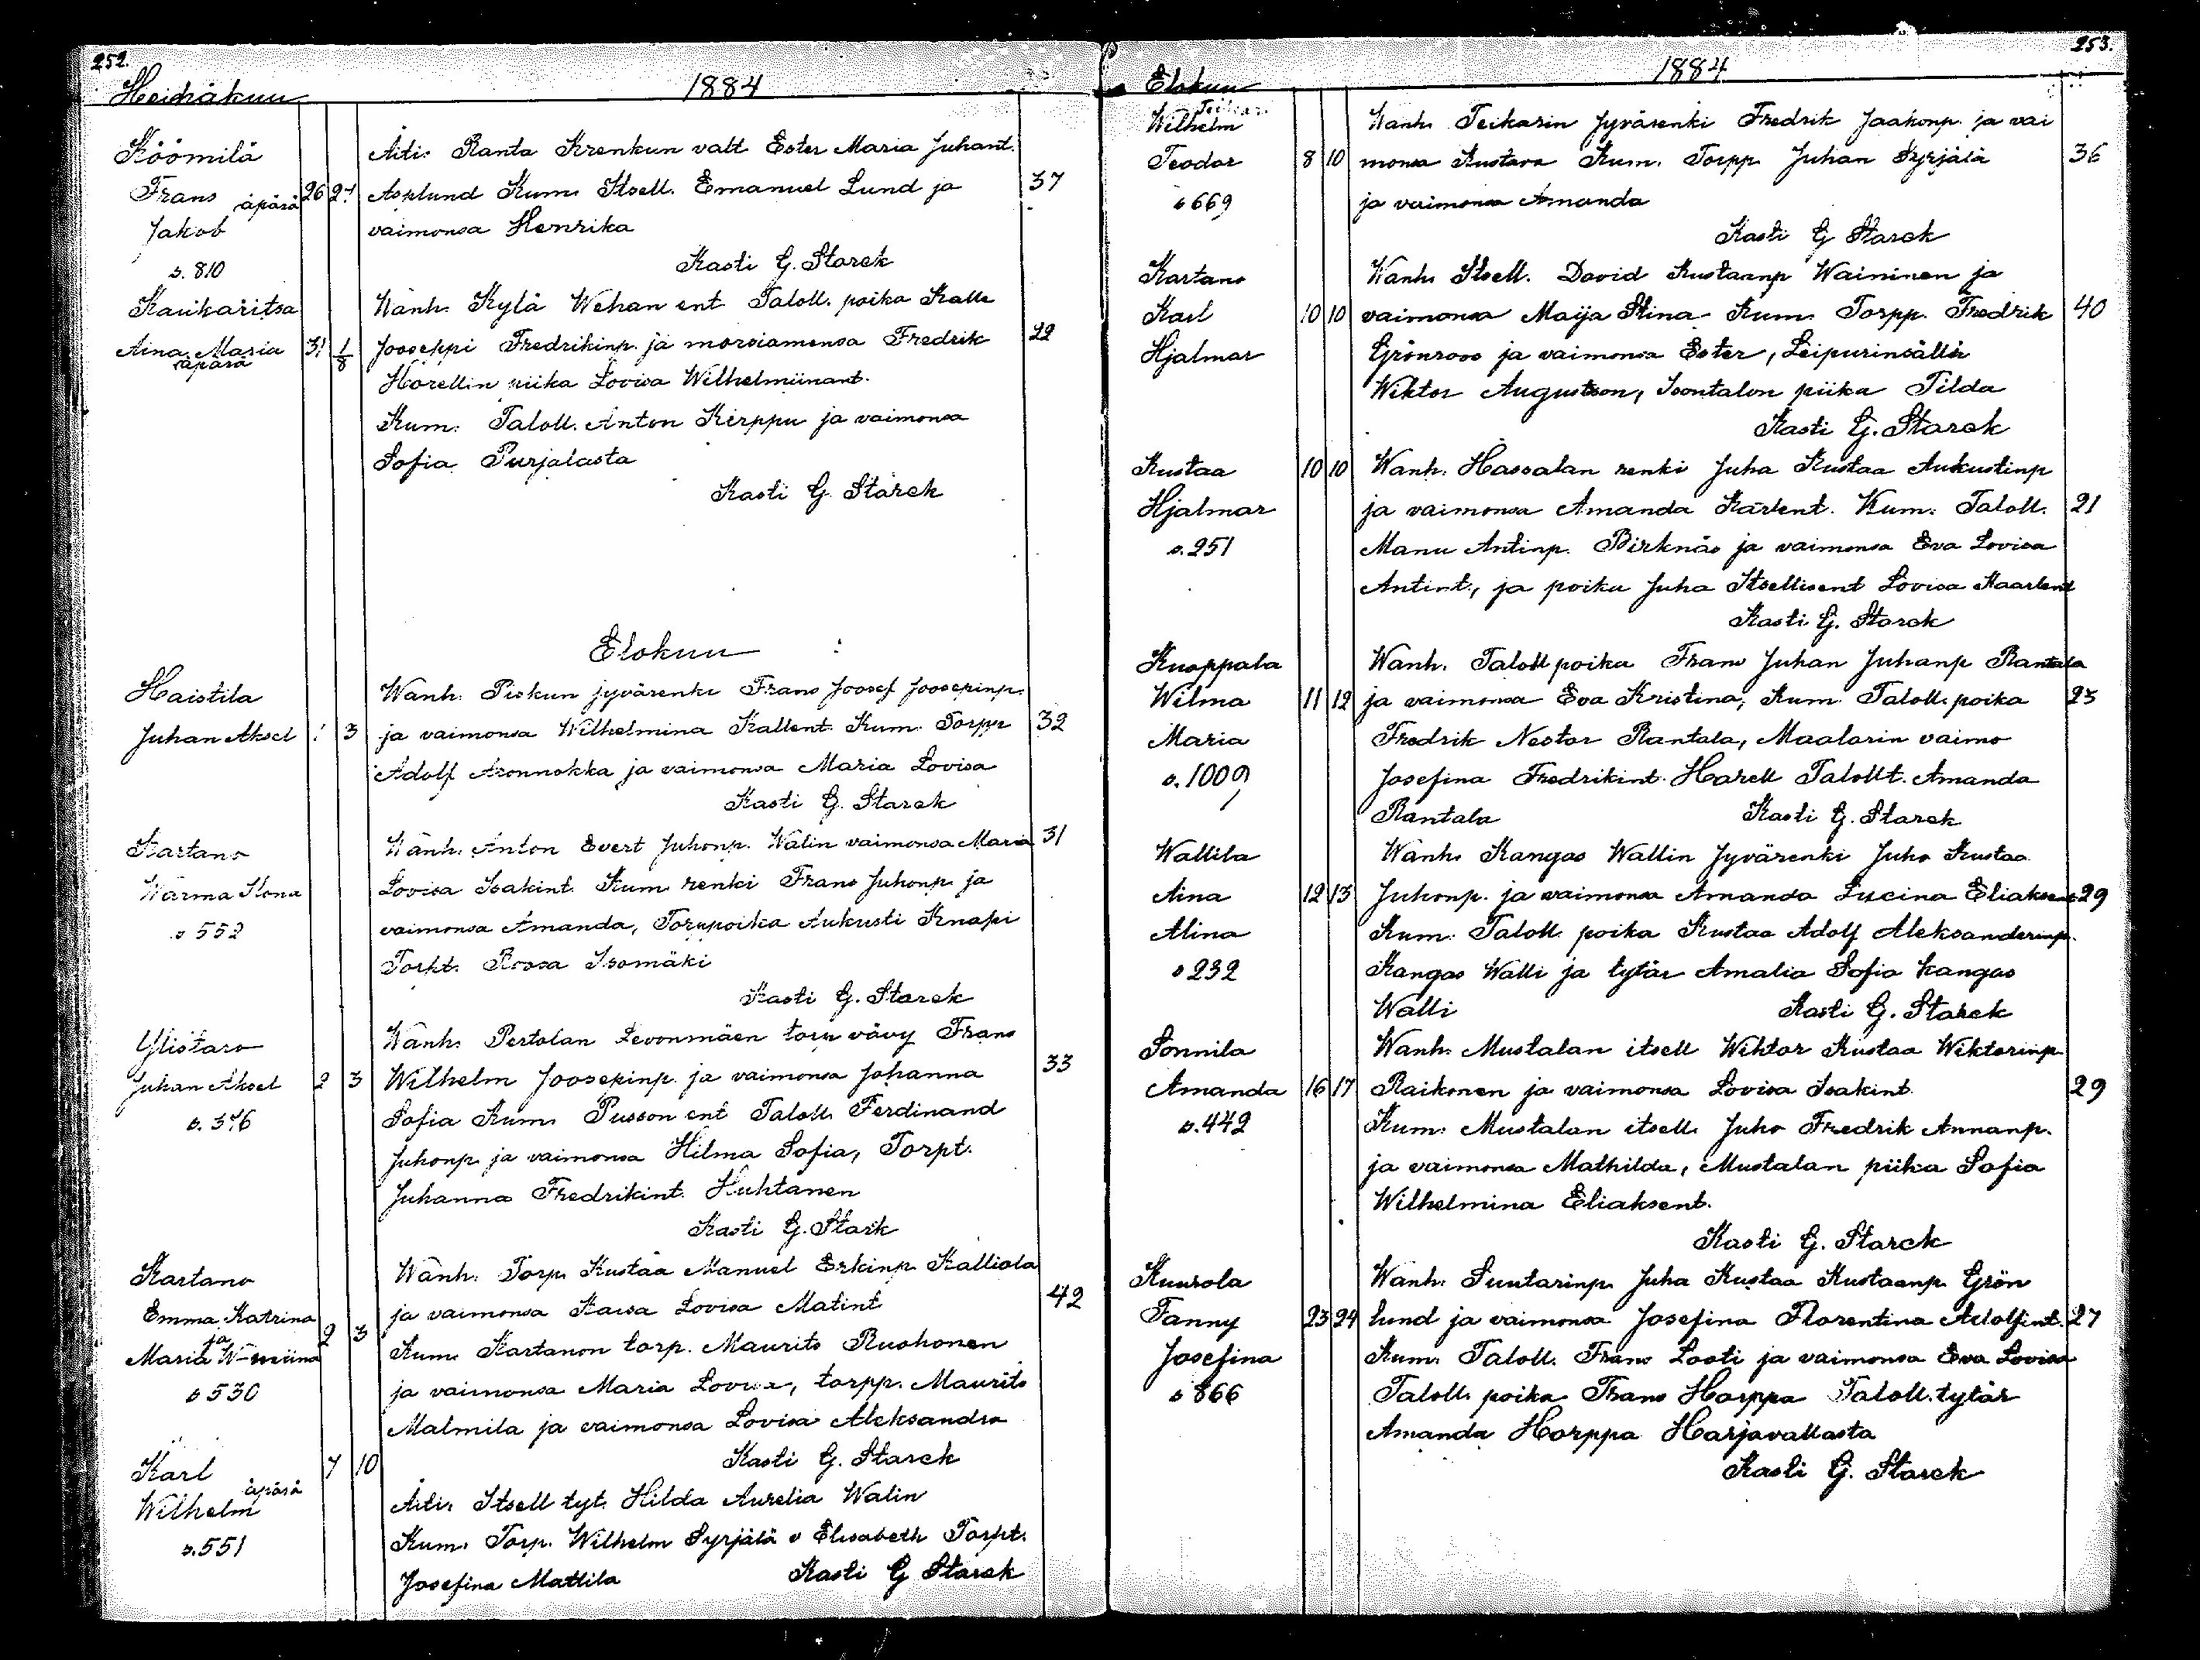 252.
Heinäkuu 1884
Köömilä
Frans äpärä 26 27
Jakob
s. 810
Äiti: Ranta Krenkun valt Ester Maria Juhant.
Asplund Kum. Itsell. Emanuel Lund ja 37
vaimonsa Henrika
Kasti G. Starck
Kaukaritsa
Aina Maria 31 1/8
äpärä
Wanh. Kylä Wehan ent. Taloll. poika Kalle
Jooseppi Fredrikinp. ja morsiamensa Fredrik 22
Horellin piika Lovisa Wilhelmiinant.
Kum. Taloll. Anton Kirppu ja vaimonsa
Sofia Purjalasta
Kasti G. Starck
Elokuu
Haistila
Juhan Aksel 1 3
Wanh. Piskun jyvärenki Frans Joosef Joosepinp.
ja vaimonsa Wilhelmina Kallent. Kum. Torpp 32
Adolf Aronnokka ja vaimonsa Maria Lovisa
Kasti G. Starck
Kartano
Warma Ilona
s 552
Wanh. Anton Evert Juhonp. Walin vaimonsa Maria 31
Lovisa Isakint. Kum renki Frans Juhonp ja
vaimonsa Amanda, Torppoika Aukusti Knapi
Torpt. Roosa Isomäki
Kasti G. Starck
Ylistaro
Juhan Aksel 2 3
s. 376
Wanh. Pertolan Levonmäen torp vävy Frans
Wilhelm Joosepinp. ja vaimonsa Johanna 33
Sofia Kum. Pusson ent Taloll. Ferdinand
Juhonp. ja vaimonsa Hilma Sofia, Torpt.
Juhanna Fredrikint. Huhtanen
Kasti G. Stark
Kartano
Emma Katrina
ja 2 3
Maria W-miina
s 530
Wanh. Torp. Kustaa Manuel Erkinp. Kalliola
ja vaimonsa Kaisa Lovisa Matint 42
Kum. Kartanon torp. Maurits Ruohonen
ja vaimonsa Maria Lovisa, torpp. Maurits
Malmila ja vaimonsa Lovisa Aleksandra
Kasti G. Starck
Karl äpärä 7 10
Wilhelm
s. 551
Äiti. Itsell tyt. Hilda Aurelia Walin
Kum. Torp. Wilhelm Syrjälä v Elisabeth Torpt.
Josefina Mattila Kasti G Starck
253.
Elokuu 1884
Wilhelm
Teodor 8 10
s 669
Wanh. Teikarin Jyvärenki Fredrik Jaakonp. ja vai
monsa Kustava Kum. Torpp. Juhan Syrjälä 36
ja vaimonsa Amanda
Kasti G Starck
Kartano
Karl 10 10
Hjalmar
Wanh. Itsell. David Kustaanp Waininen ja
vaimonsa Maija Stina Kum. Torpp. Fredrik 40
Grönroos ja vaimonsa Ester, Leipurinsälli
Wiktor Augustson, Isontalon piika Tilda
Kasti G. Starck
Kustaa 10 10
Hjalmar
s. 251
Wanh. Hassalan renki Juha Kustaa Aukustinp
ja vaimonsa Amanda Karlent. Kum. Taloll. 21
Manu Antinp. Birknäs ja vaimonsa Eva Lovisa
Antint., ja poika Juha Itsellisent Lovisa Kaarlent
Kasti G. Starck
Knaappala
Wilma 11 12
Maria
s. 1009
Wanh. Taloll poika Frans Juhan Juhanp Rantala
ja vaimonsa Eva Kristina, Kum. Taloll. poika 23
Fredrik Nestor Rantala, Maalarin vaimo
Josefina Fredrikint. Horell Talollt. Amanda
Rantala Kasti G. Starck
Wallila
Aina 12 13
Alina
s 232
Wanh. Kangas Wallin Jyvärenki Juho Kustaa
Juhonp. ja vaimonsa Amanda Lucina Eliaksent 29
Kum. Taloll. poika Kustaa Adolf Aleksanderinp.
Kangas Walli ja tytär Amalia Sofia Kangas
Walli Kasti G. Starck
Sonnila
Amanda 16 17
s. 442
Wanh. Mustalan itsell Wiktor Kustaa Wiktorinp.
Raikonen ja vaimonsa Lovisa Isakint. 29
Kum. Mustalan itsell. Juho Fredrik Annanp.
ja vaimonsa Mathilda, Mustalan piika Sofia
Wilhelmina Eliaksent.
Kasti G. Starck
Kuurola
Fanny 23 24
Josefina
s 866
Wanh. Suutarinp. Juha Kustaa Kustaanp. Grön
lund ja vaimonsa Josefina Florentina Adolfint. 27
Kum. Taloll. Frans Looti ja vaimonsa Eva Lovisa
Taloll. poika Frans Horppa Taloll. tytär
Amanda Horppa Harjavallasta
Kasti G. Starck